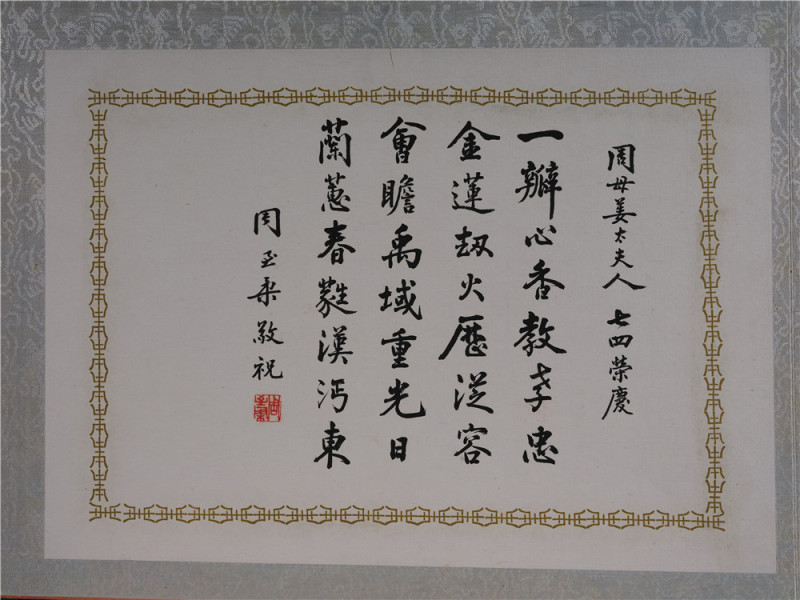 周母姜太夫人七四榮慶
一瓣心香教孝忠
金蓮劫火歷從容
會瞻禹域重光日
蘭蕙春蕤漢沔東
周至柔敬祝